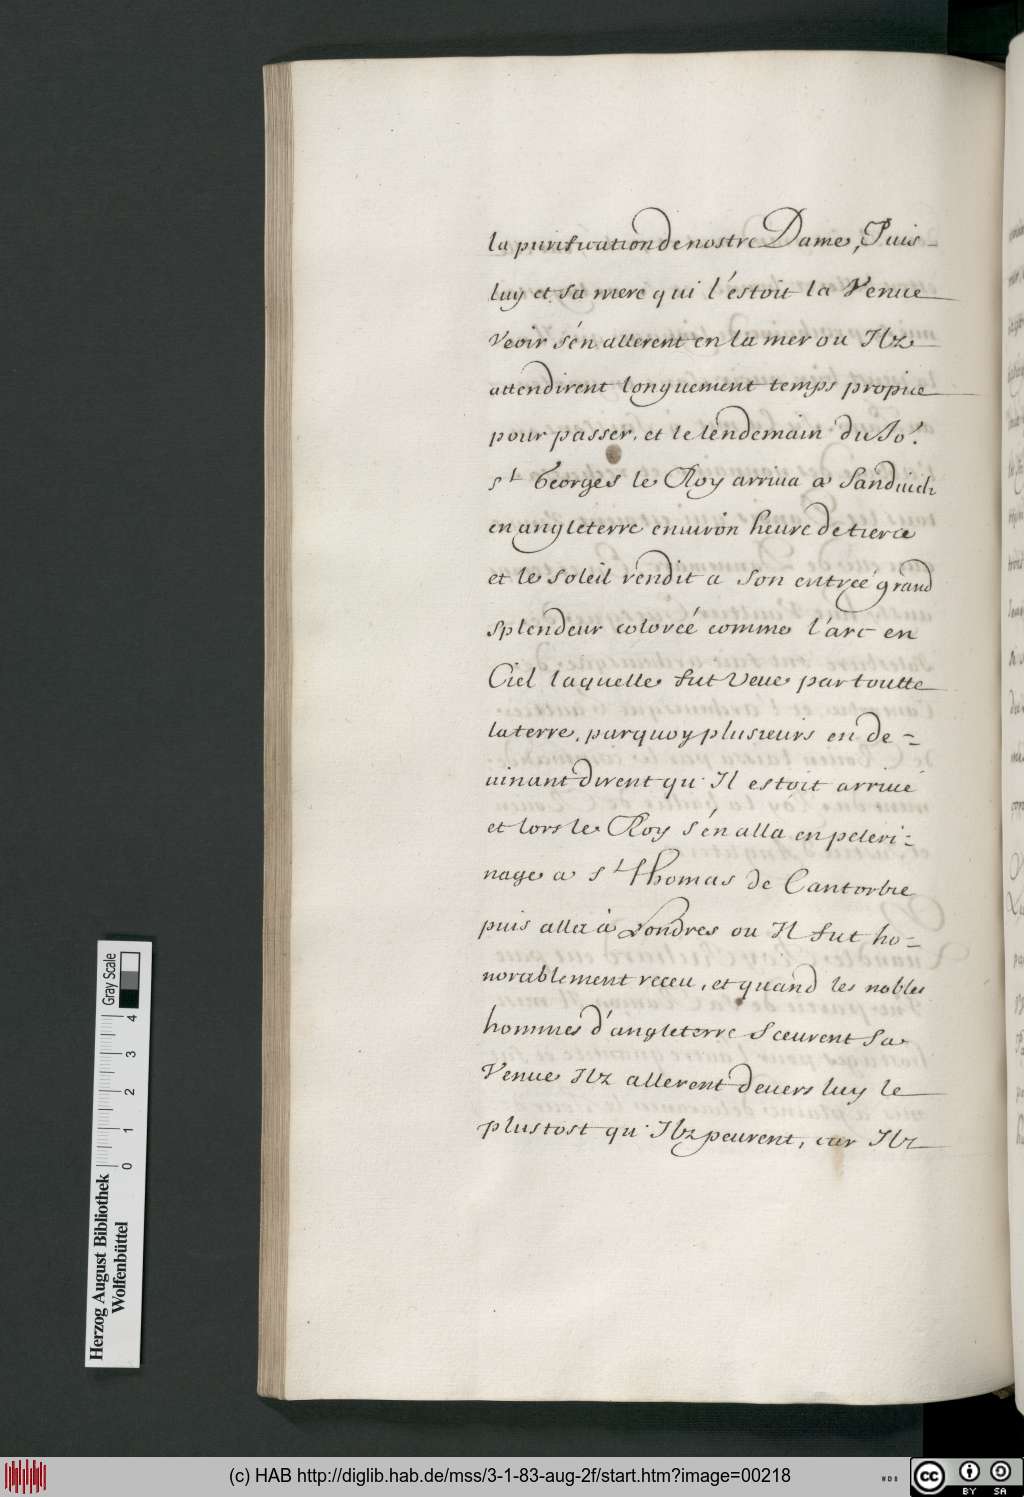 la purification de nostre Dame, Puis-
luy et sa mere qui l'estoit la Venue
veoir s'en allerent en la mer ou Ilz
attendirent longuement temps propice
pour passer, et le lendemain du Jo.r
s.t Georges le Roy arriua a Sanduich
en angleterre enuiron heure de tierce
et le soleil rendit a son entreé grand
splendeur coloreé comme l'arc en
Ciel laquelle fut Veue par toutte
la terre, parquoy plusieurs en de=
uinant dirent qu'Il estoit arriué
et lors le Roy s'en alla en peleri=
nage a s.t Thomas de Cantorbie
puis alla à Londres ou Il fut ho=
norablement receu, et quand les nobles
hommes d'angleterre sceurent sa
Venue Ilz allerent deuers luy le
plustost qu'Ilz peurent, car Ilz
Herzog August Bibliothek
Wolfenbüttel
0 1 2 3 4
Gray Scale
(c) HAB http://diglib.hab.de/mss/3-1-83-aug-2f/start.htm?image=00218
WDB
CC BY SA